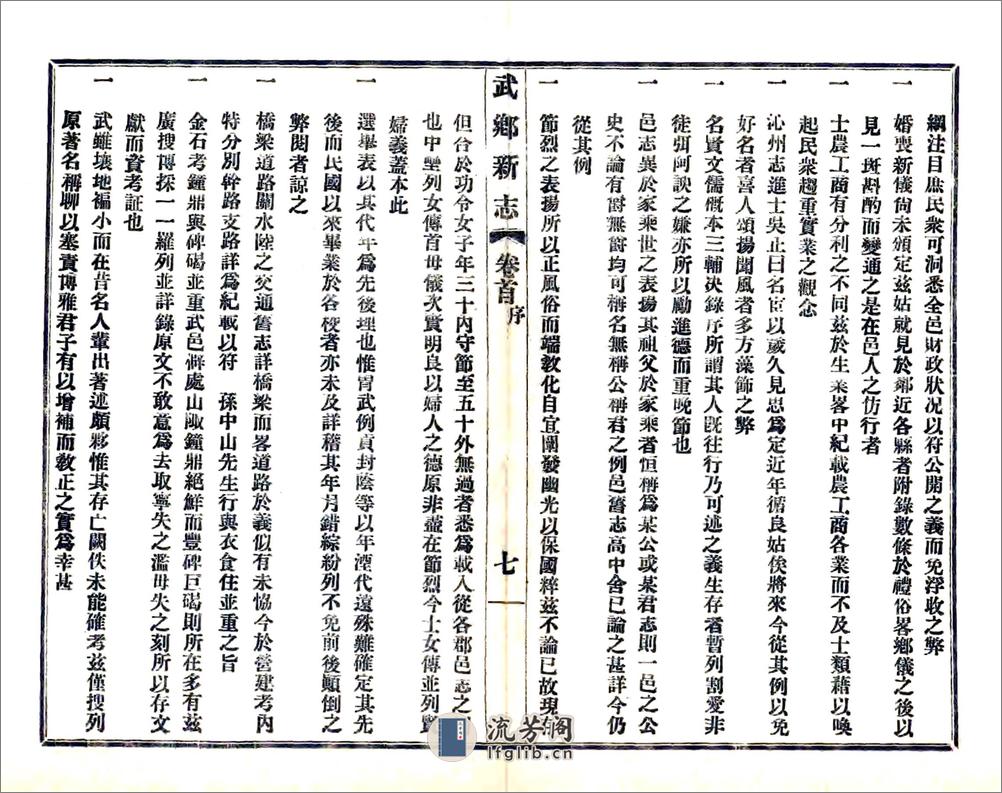 綱注目庶民衆可洞悉全邑財政狀况以符公開之義而免浮收之弊
一　婚喪新儀尙未頒定兹姑就見於鄰近各縣者附錄數條於禮俗畧鄉儀之後以
見一斑斟酌而變通之是在邑人之仿行者
一　士農工商有分利之不同兹於生業畧中紀載農工商各業而不及士類藉以喚
起民衆趨重實業之觀念
一　沁州志進士吳止曰名宦以歲久見思爲定近年循良姑俟將來今從其例以免
好名者喜人頌揚聞風者多方藻飾之弊
一　名賢文儒槪本三輔決錄序所謂其人旣往行乃可述之義生存者暫列割愛非
徒弭阿諛之嫌亦所以勵進德而重晚節也
一　邑志異於家乘世之表揚其祖父於家乘者恒稱爲某公或某君志則一邑之公
史不論有爵無爵均可稱名無稱公稱君之例邑舊志高中舍已論之甚詳今仍
從其例
一　節烈之表揚所以正風俗而端敎化自宜闡發幽光以保國粹兹不論已故現存
武鄉新志
卷首
序
七
但合於功令女子年三十內守節至五十外無過者悉爲載入從各郡邑志之
也中壘列女傳首母儀次賢明良以婦人之德原非盡在節烈今士女傳並列賢
婦義蓋本此
一　選舉表以其代年爲先後理也惟胄武例貢封蔭等以年湮代遠殊難確定其先
後而民國以來畢業於各校者亦未及詳稽其年月錯綜紛列不免前後顚倒之
弊閱者諒之
一　橋梁道路關水陸之交通舊志詳橋梁而畧道路於義似有未協今於營建考內
特分別幹路支路詳爲紀載以符　孫中山先生行與衣食住並重之旨
一　金石考鐘鼎與碑碣並重武邑僻處山陬鐘鼎絕鮮而豐碑巨碣則所在多有兹
廣搜博採一一羅列並詳錄原文不敢意爲去取寧失之濫毋失之刻所以存文
獻而資考証也
一　武雖壤地褊小而在昔名人輩出著述頗夥惟其存亡闕佚未能確考兹僅搜列
原著名稱聊以塞責博雅君子有以增補而敎正之實爲幸甚
流芳閣
lfglib.cn